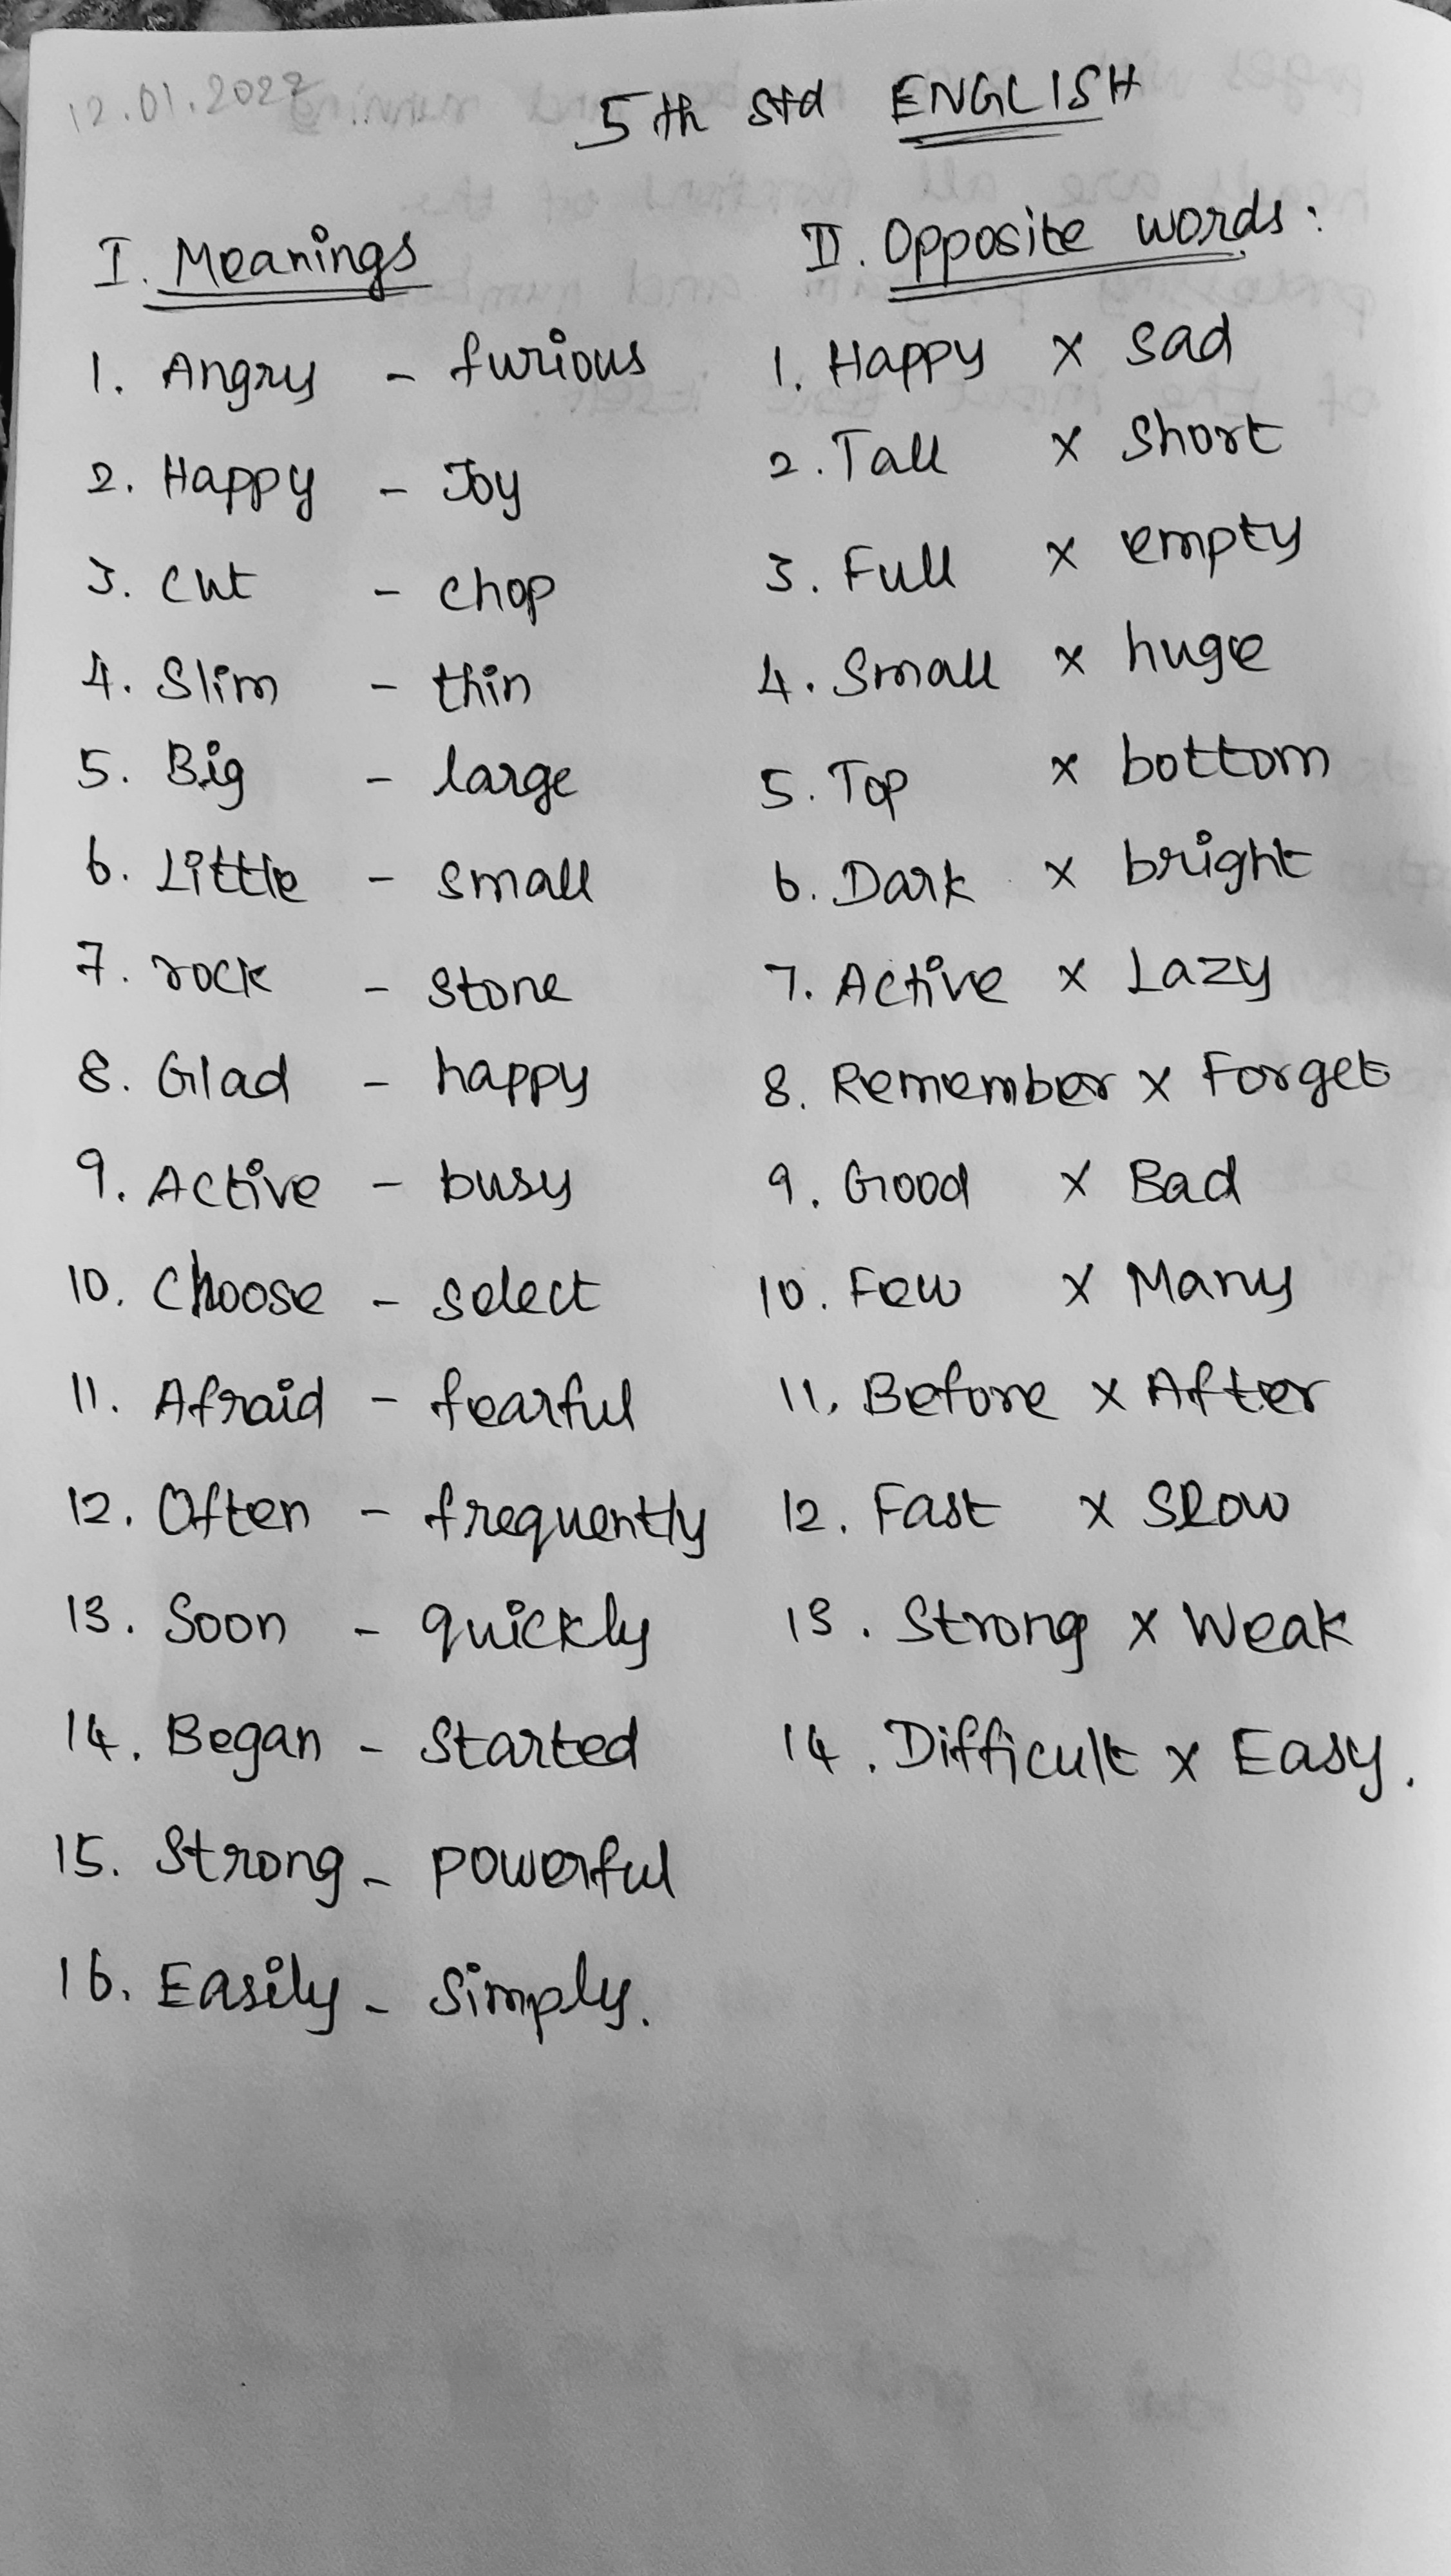 12.01.2022
5th std ENGLISH
I. Meanings
1. Angry - furious
2. Happy - Joy
3. cut - chop
4. Slim - thin
5. Big - large
6. Little - small
7. rock - stone
8. Glad - happy
9. Active - busy
10. Choose - select
11. Afraid - fearful
12. Often - frequently
13. Soon - quickly
14. Began - Started
15. Strong - powerful
16. Easily - Simply.
II. Opposite words:
1. Happy x sad
2. Tall x short
3. Full x empty
4. Small x huge
5. Top x bottom
6. Dark x bright
7. Active x Lazy
8. Remember x Forget
9. Good x Bad
10. Few x Many
11. Before x After
12. Fast x Slow
13. Strong x Weak
14. Difficult x Easy.